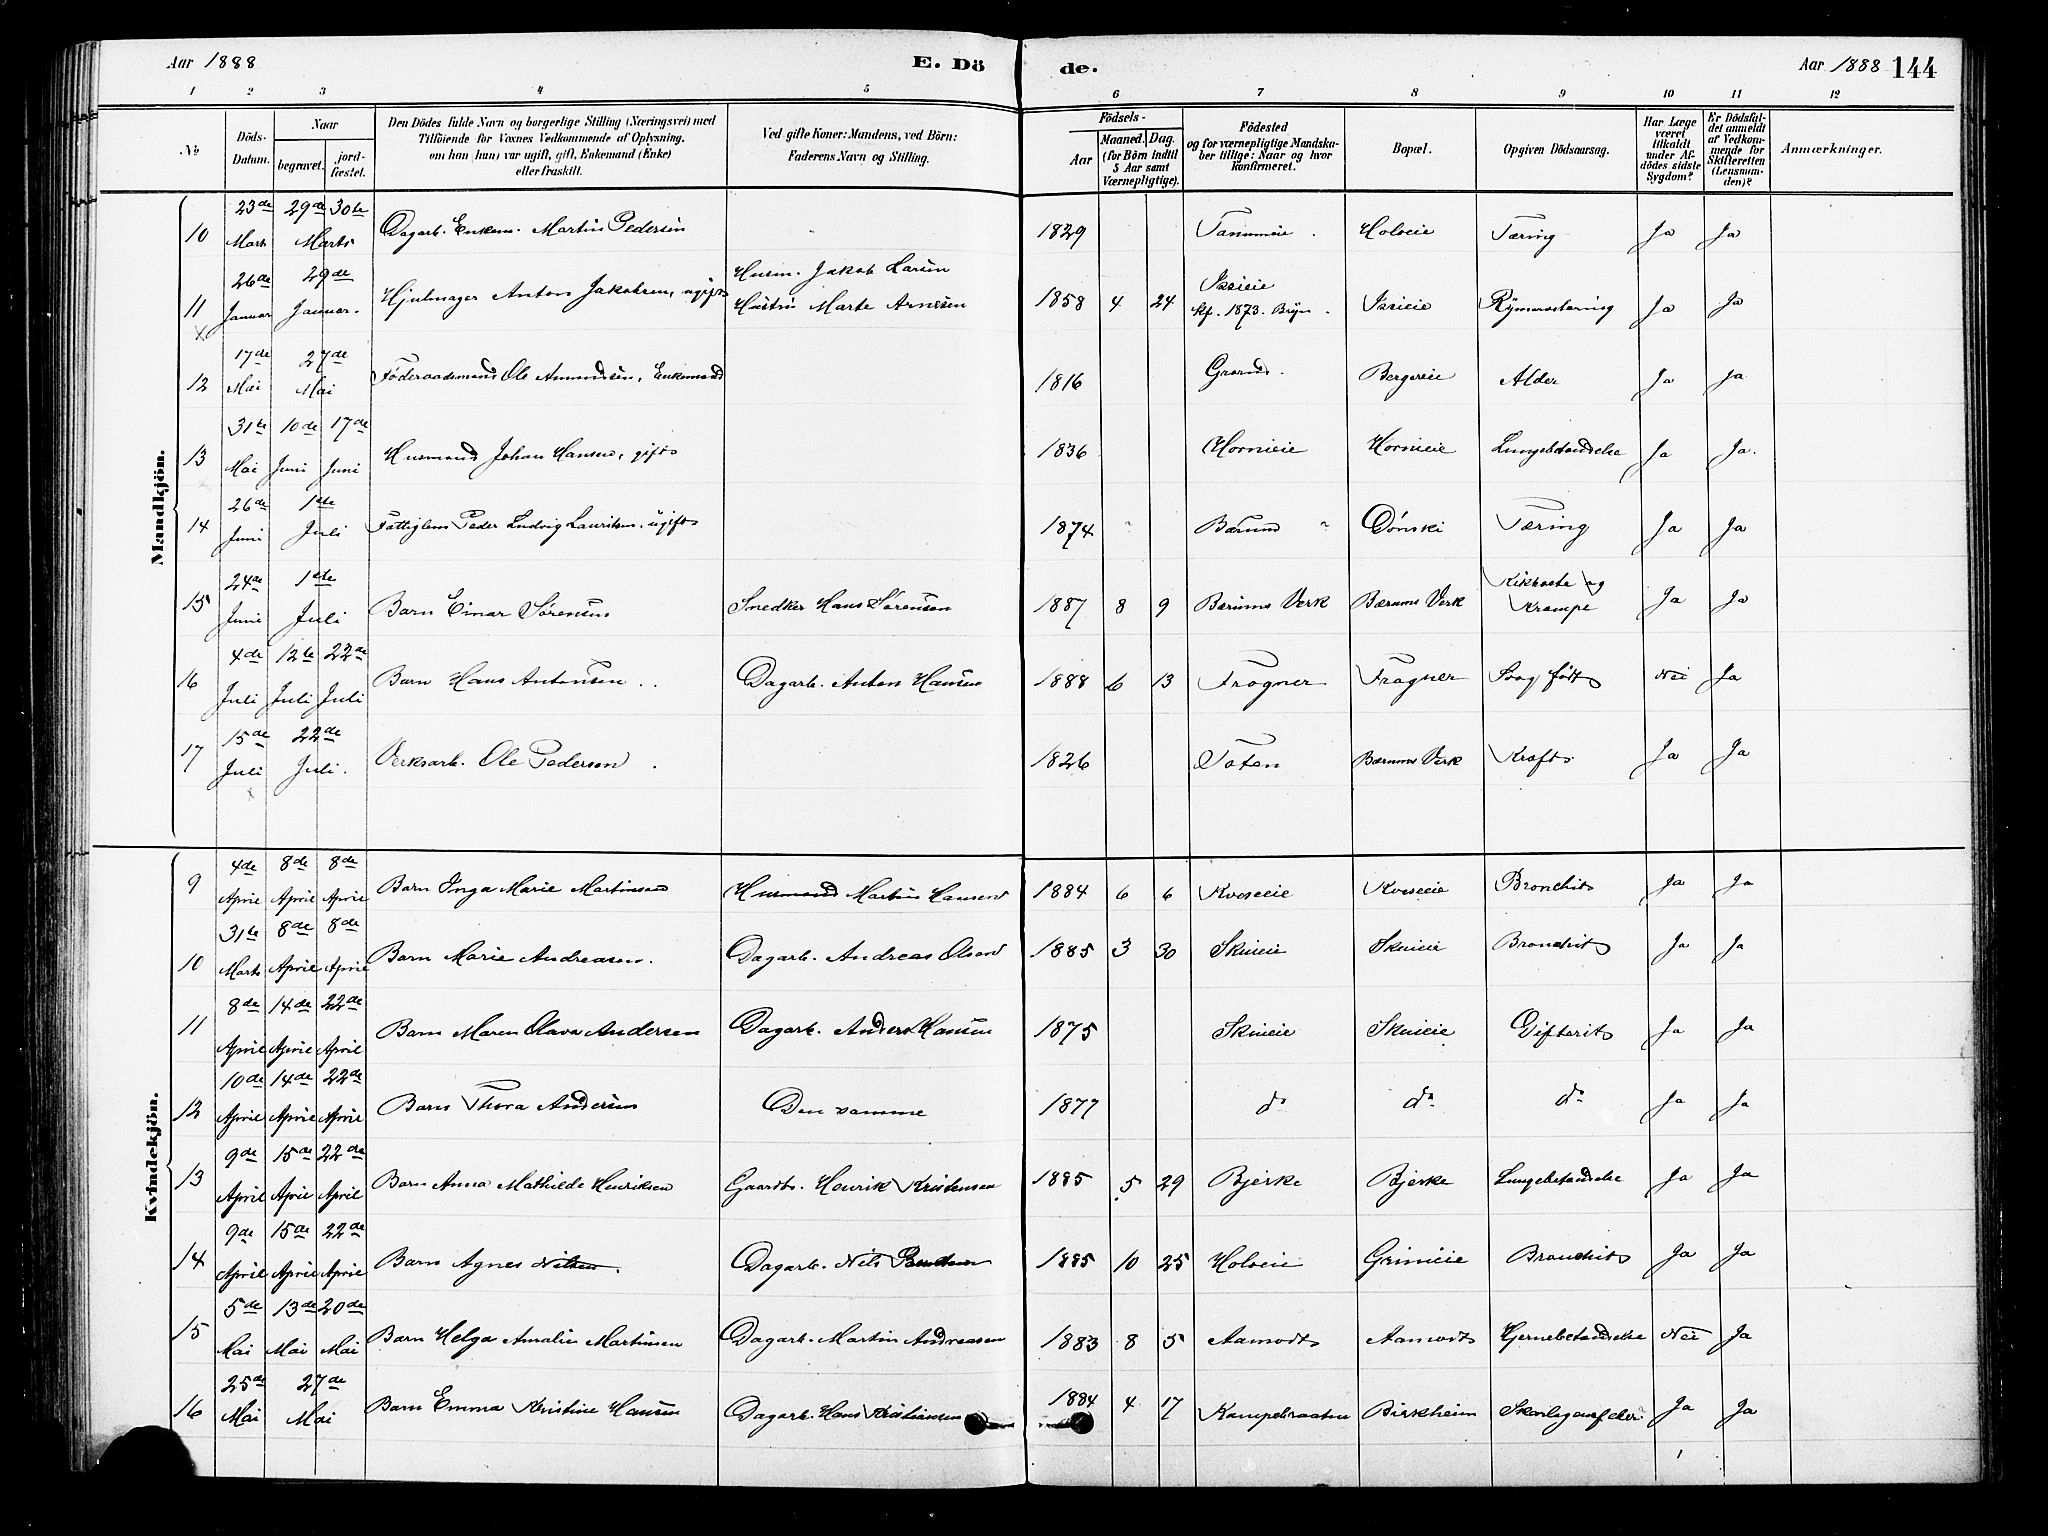 Aar 1888
E. Dö
de.
Aar 1888 144
1 2 3 4 5 6 7 8 9 10 11 12
No
Döds-
Datum.
Naar
begravet.
jord-
fæstet.
Den Dödes fulde Navn og borgerlige Stilling (Næringsvei) med
Tilföiende for Voxnes Vedkommende af Oplysning,
om han (hun) var ugift, gift, Enkemand (Enke)
eller fraskilt.
Ved gifte Koner: Mandens, ved Börn:
Faderens Navn og Stilling.
Födsels-
Aar
Maaned. Dag.
(for Börn indtil
5 Aar samt
Værnepligtige).
Födested
og for værnepligtige Mandska-
ber tillige: Naar og hvor
konfirmeret.
Bopæl.
Opgiven Dödsaarsag.
Har Læge
været
tilkaldt
under Af-
dödes sidste
Sygdom?
Er Dödsfal-
det anmeldt
af Vedkom-
mende for
Skifteretten
(Lensman-
den)?
Anmærkninger.
Mandkjön.
23de 29de 30te
10 Marts Marts Dagarb. Enkem. Martin Pedersen 1829 Tanumeie Holveie Tæring Ja Ja
26de 29de Husm. Jakob Larsen Iszieie
11 Januar Januar. Hjulmager Anton Jakobsen, ugift Hustru Marte Arnesen 1858 4 24 Kf. 1873. Bryn Iszieie Ja Ja
17de 27de
12 Mai Mai Föderaadsmand Ole Amundsen, Enkemand 1816 Bergereie Alder Ja Ja
31te 10de 17de
13 Mai Juni Juni Husmand Johan Hansen, gift 1836 Hornieie Hornieie Lungebetændelse Ja Ja.
26de 1ste
14 Juni Juli Fattiglem Peder Ludvig Lauritsen, ugift 1874 Bærum Dönski Tæring Ja Ja
24de 1ste Kikhoste og
15 Juni Juli Barn Einar Sörensen Snedker Hans Sörensen 1887 8 9 Bærums Verk Bærums Verk Krampe Ja Ja
4de 12te 22de
16 Juli Juli Juli Barn Hans Antonsen Dagarb. Anton Hansen 1888 6 13 Frogner Frogner Svag födt Nei Ja
15de 22de
17 Juli Juli. Verksarb. Ole Pedersen 1826 Toten Bærums Verk Kræft Ja Ja
Kvindekjön.
4de 8de 8de
9 April April April Barn Inga Marie Martinsen Husmand Martin Hansen 1884 6 6 Bronchit Ja Ja
31te 8de 8de
10 Marts April April Barn Marie Andreasen. Dagarb. Andreas Olsen 1885 3 30 Skuieie Skuieie Bronchit Ja Ja
8de 14de 22de
11 April April April Barn Maren Olava Andersen Dagarb. Anders Hansen 1875 Skuieie Skuieie Difterit Ja Ja
10de 14de 22de
12 April April April Barn Thora Andersen Den samme 1877 do do do Ja Ja
9de 15de 22de
13 April April April Barn Anna Mathilde Henriksen Gaardb. Henrik Kristensen 1885 5 29 Bjerke Bjerke Lungebetændelse Ja Ja
9de 15de 22de
14 April April April Barn Agnes Nilsen. Dagarb. Nils 1885 10 25 Holveie Grinieie Bronchit Ja Ja
5de 13de 20de
15 Mai Mai Mai Barn Helga Amalie Martinsen Dagarb. Martin Andreasen 1883 8 5 Aamodt Aamodt Hjernebetændelse Nei Ja
25de 27de
16 Mai Mai Barn Emma Kristine Hansen Dagarb. Hans Kristiansen 1884 4 17 Kampebraaten Birkheim Skarlagensfeber Ja Ja